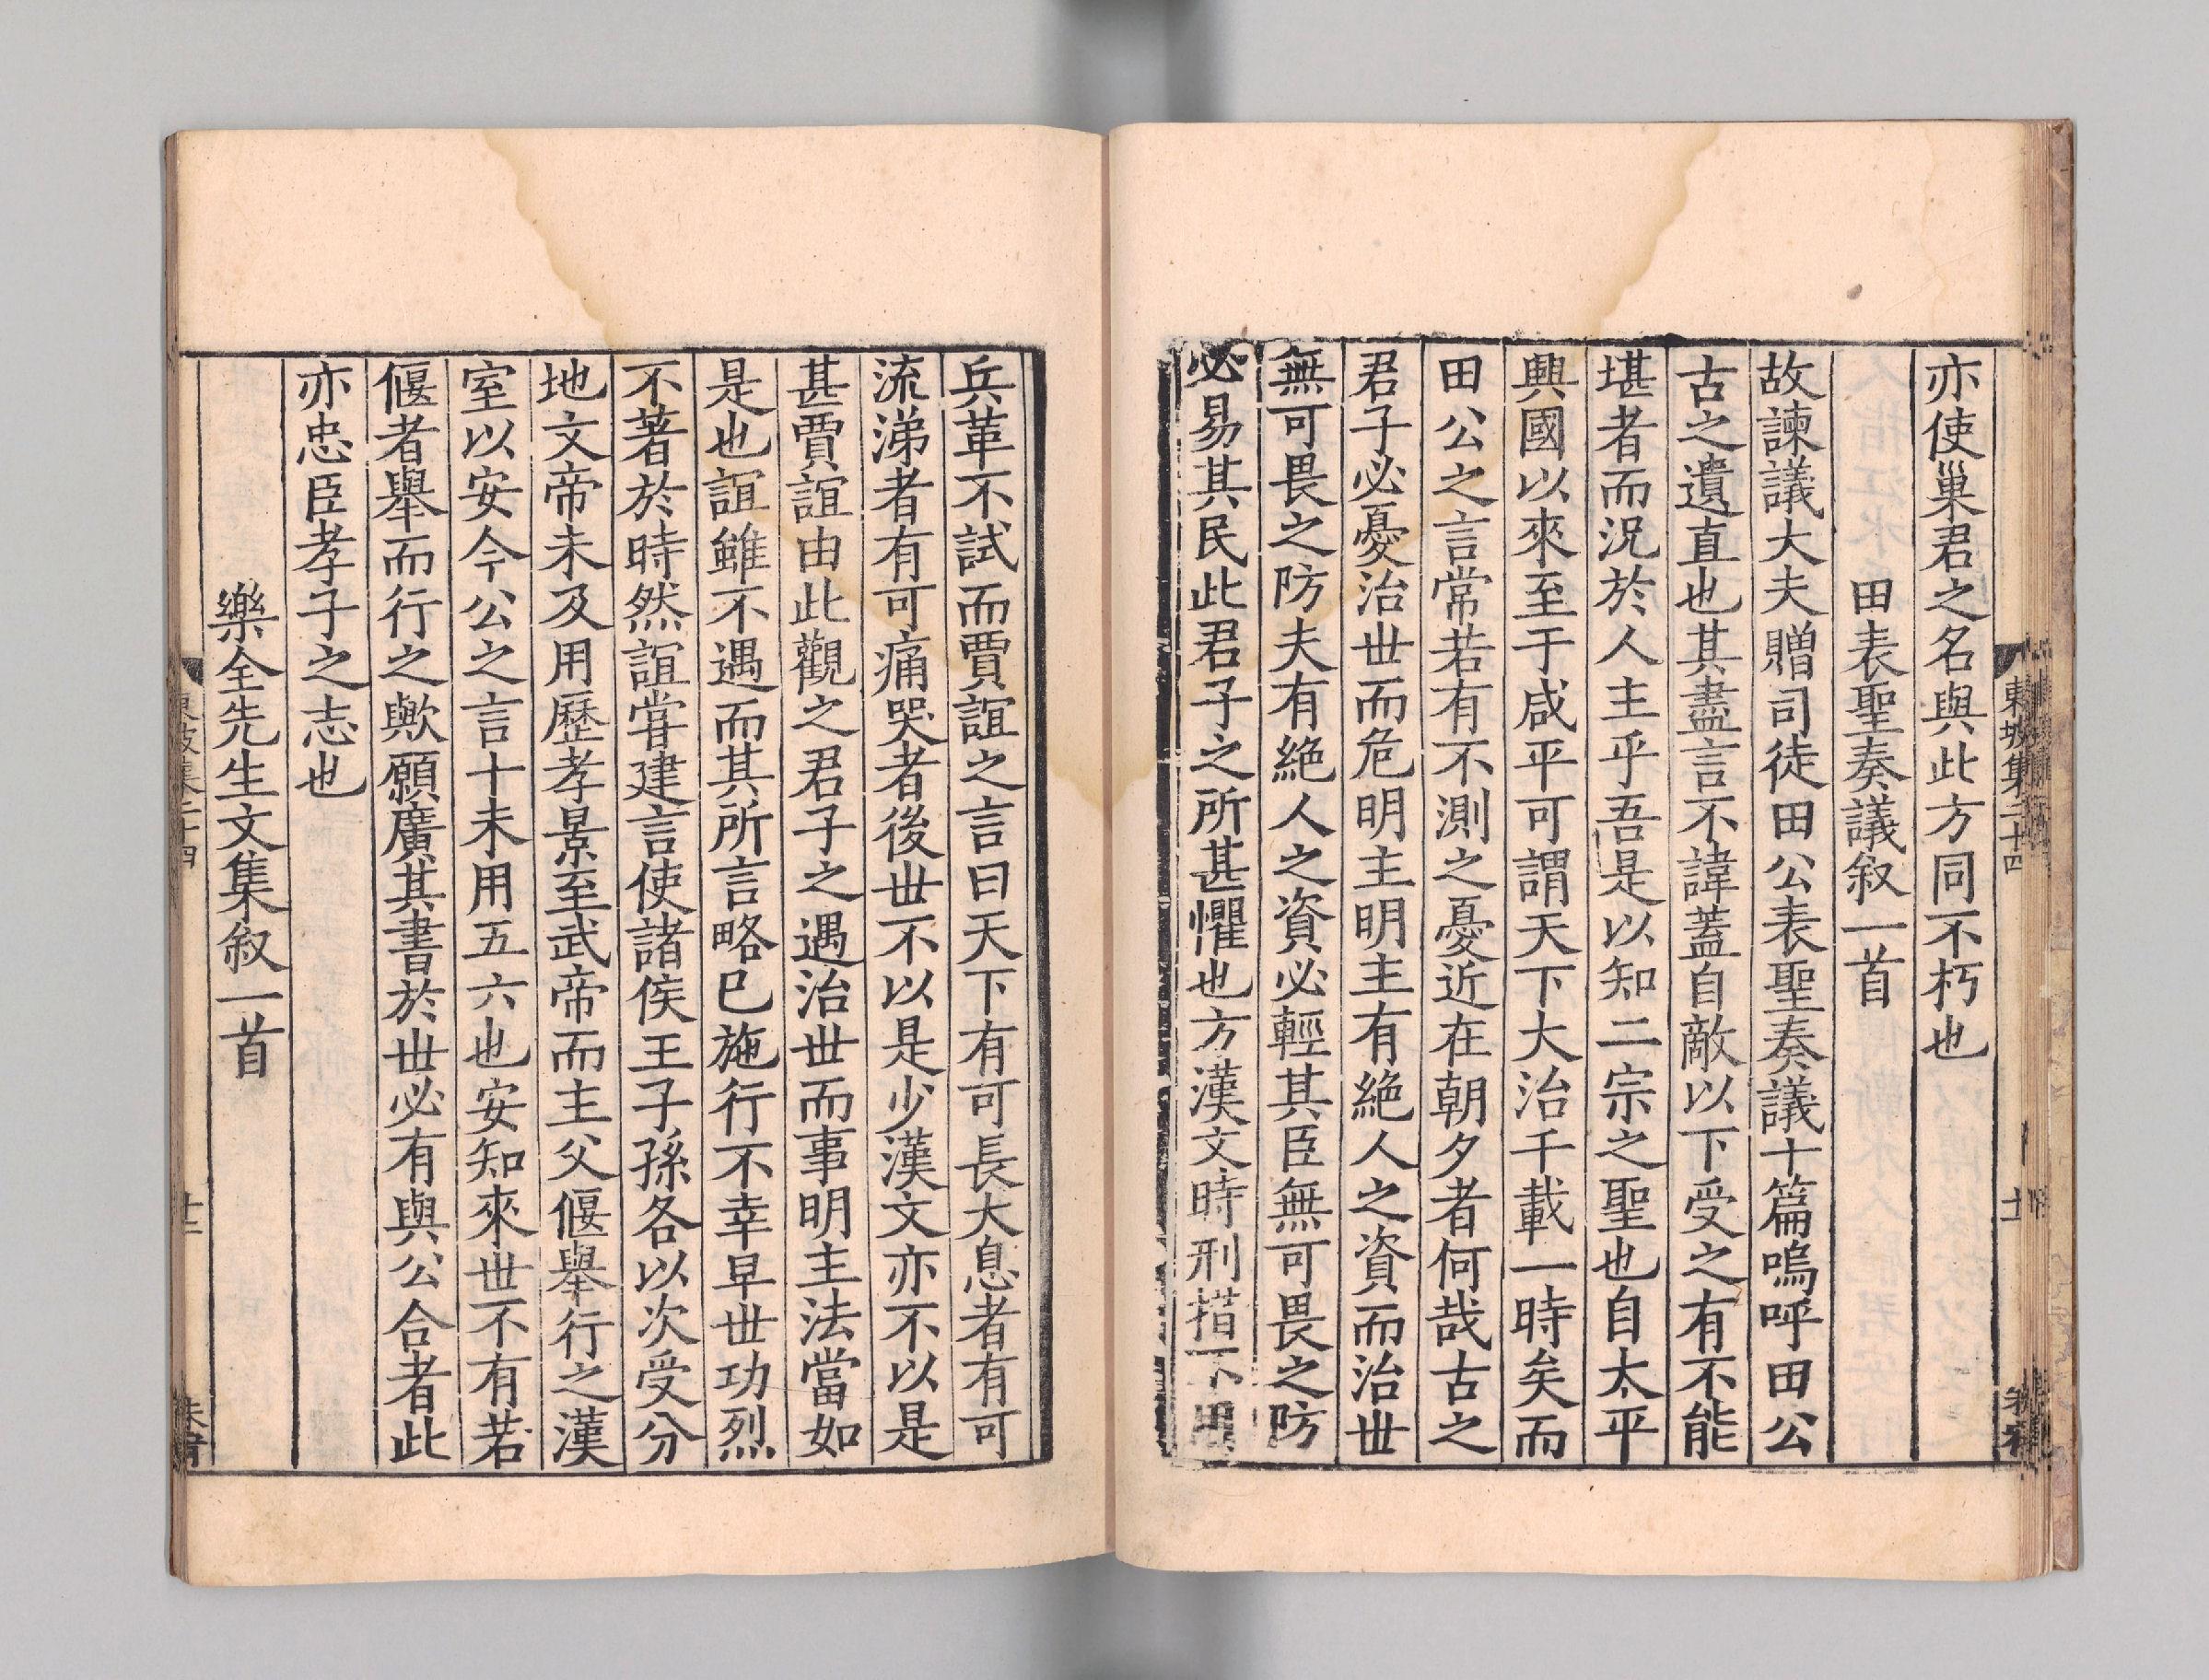 亦使巢君之名與此方同不朽也
田表聖奏議叙一首
故諫議大夫贈司徒田公表聖奏議十篇嗚呼田公
古之遺直也其盡言不諱蓋自敵以下受之有不能
堪者而況於人主乎吾是以知二宗之聖也自太平
興國以來至于咸平可謂天下大治千載一時矣而
田公之言常若有不測之憂近在朝夕者何哉古之
君子必憂治世而危明主明主有絶人之資而治世
無可畏之防夫有絶人之資必輕其臣無可畏之防
必易其民此君子之所甚懼也方漢文時刑措不用
兵革不試而賈誼之言曰天下有可長大息者有可
流涕者有可痛哭者後世不以是少漢文亦不以是
甚賈誼由此觀之君子之遇治世而事明主法當如
是也誼雖不遇而其所言略已施行不幸早世功烈
不著於時然誼甞建言使諸侯王子孫各以次受分
地文帝未及用歷孝景至武帝而主父偃舉行之漢
室以安今公之言十未用五六也安知來世不有若
偃者舉而行之歟願廣其書於世必有與公合者此
亦忠臣孝子之志也
樂全先生文集叙一首
東坡集二十四
十二